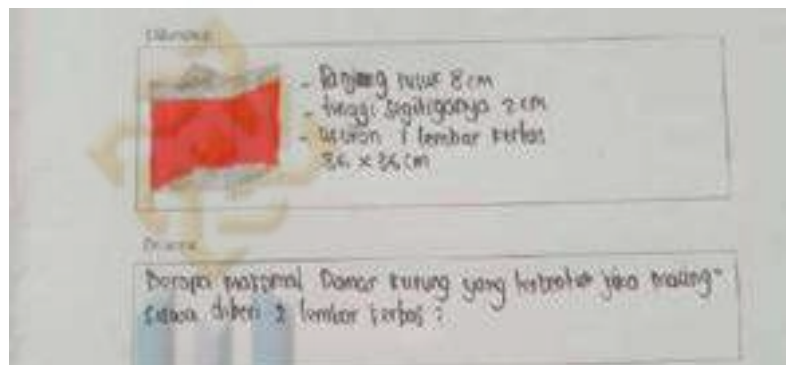 Diketahui
- Panjang rusuk 8 cm
- tinggi segitiganya 2 cm
- ukuran 1 lembar kertas
36 × 36 cm
Ditanya
Berapa maksimal Damar kurung yang terbentuk jika masing"
siswa diberi 2 lembar kertas ?